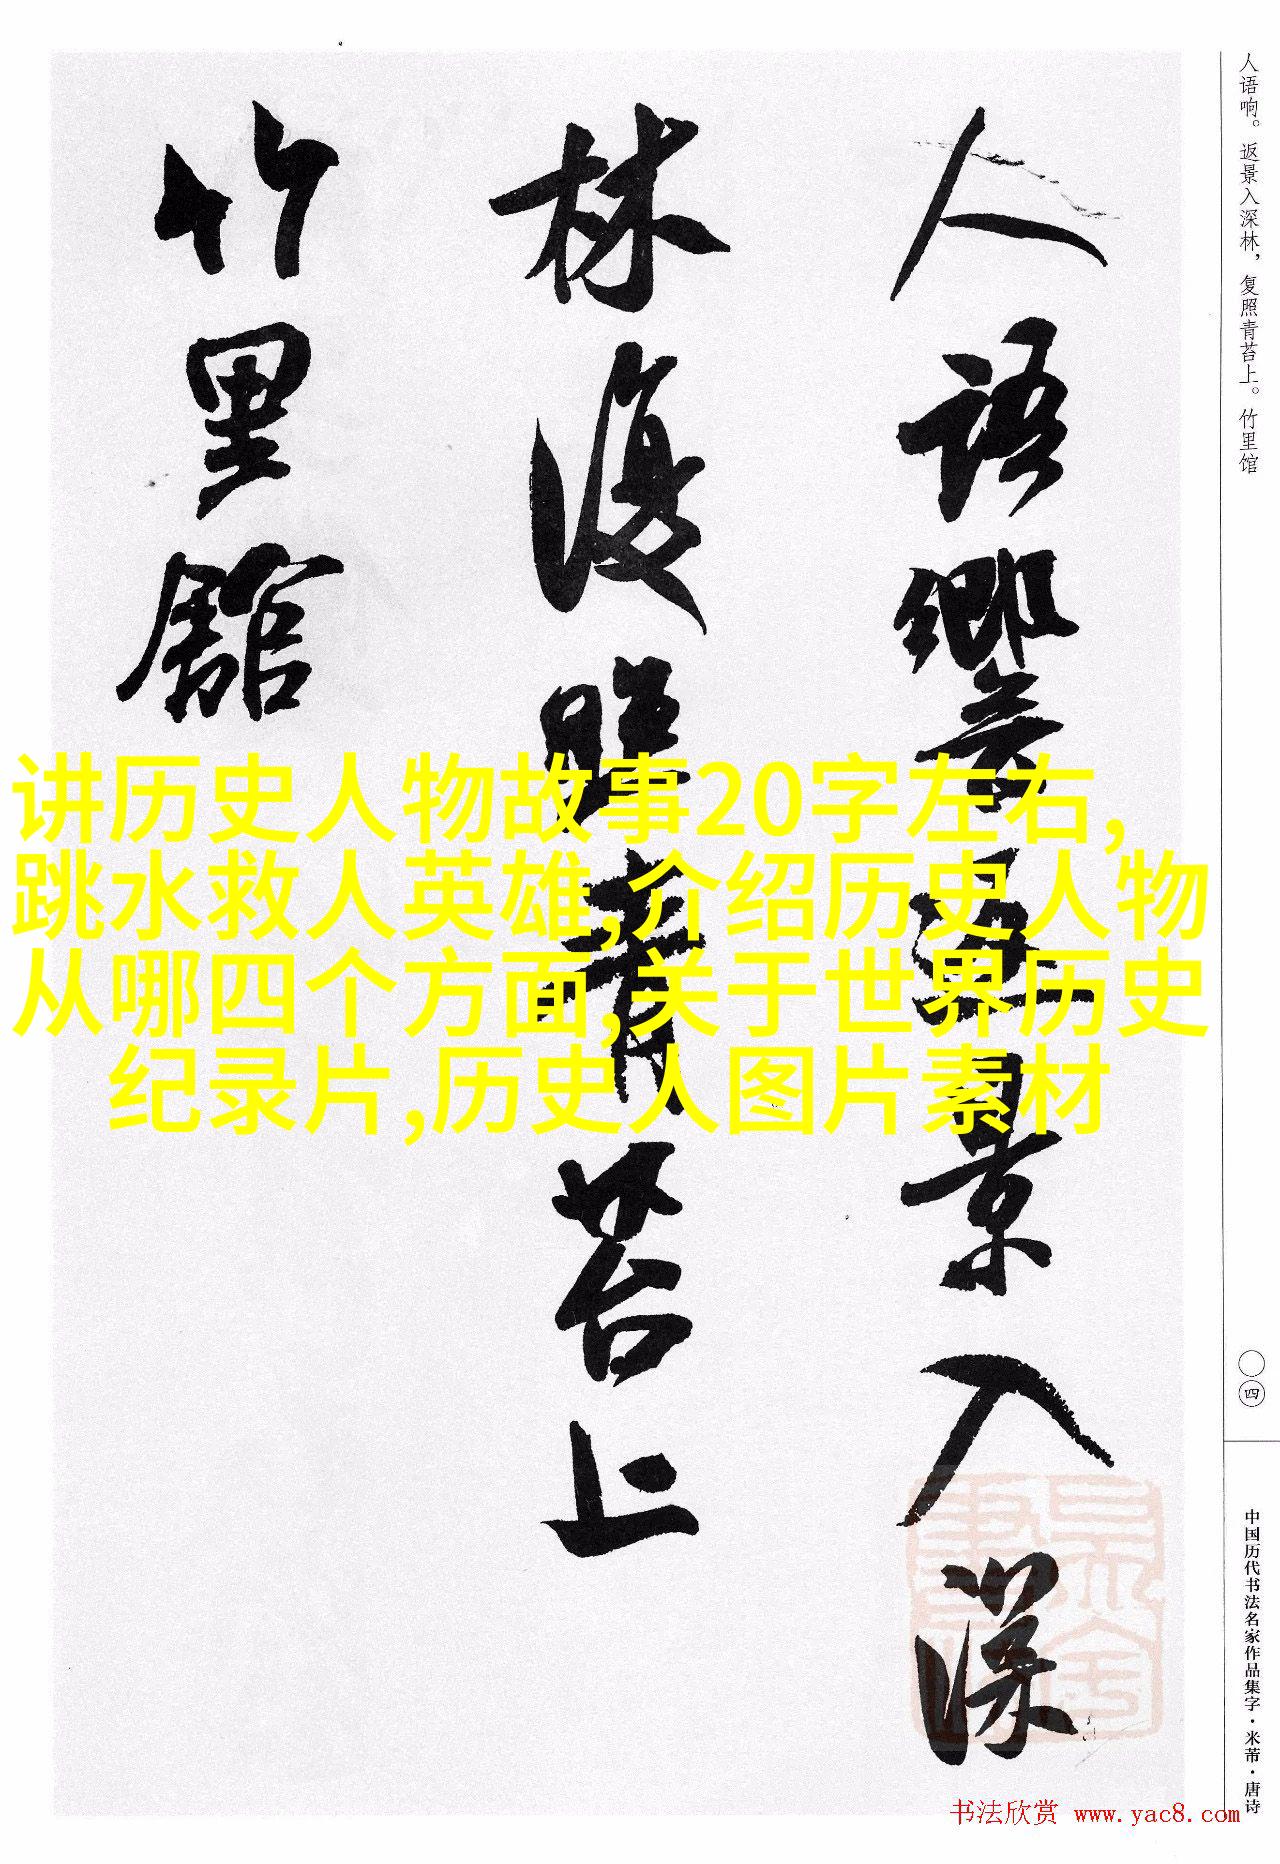 人语响。返景入深林，复照青苔上。竹里馆
人语響返景入深
林復照青苔上
竹里館
讲历史人物故事20字左右,
跳水救人英雄,介绍历史人物
从哪四个方面,关于世界历史
纪录片,历史人图片素材
〇四
中国历代书法名家作品集字·米芾·唐诗
书法欣赏 www.yac8.com